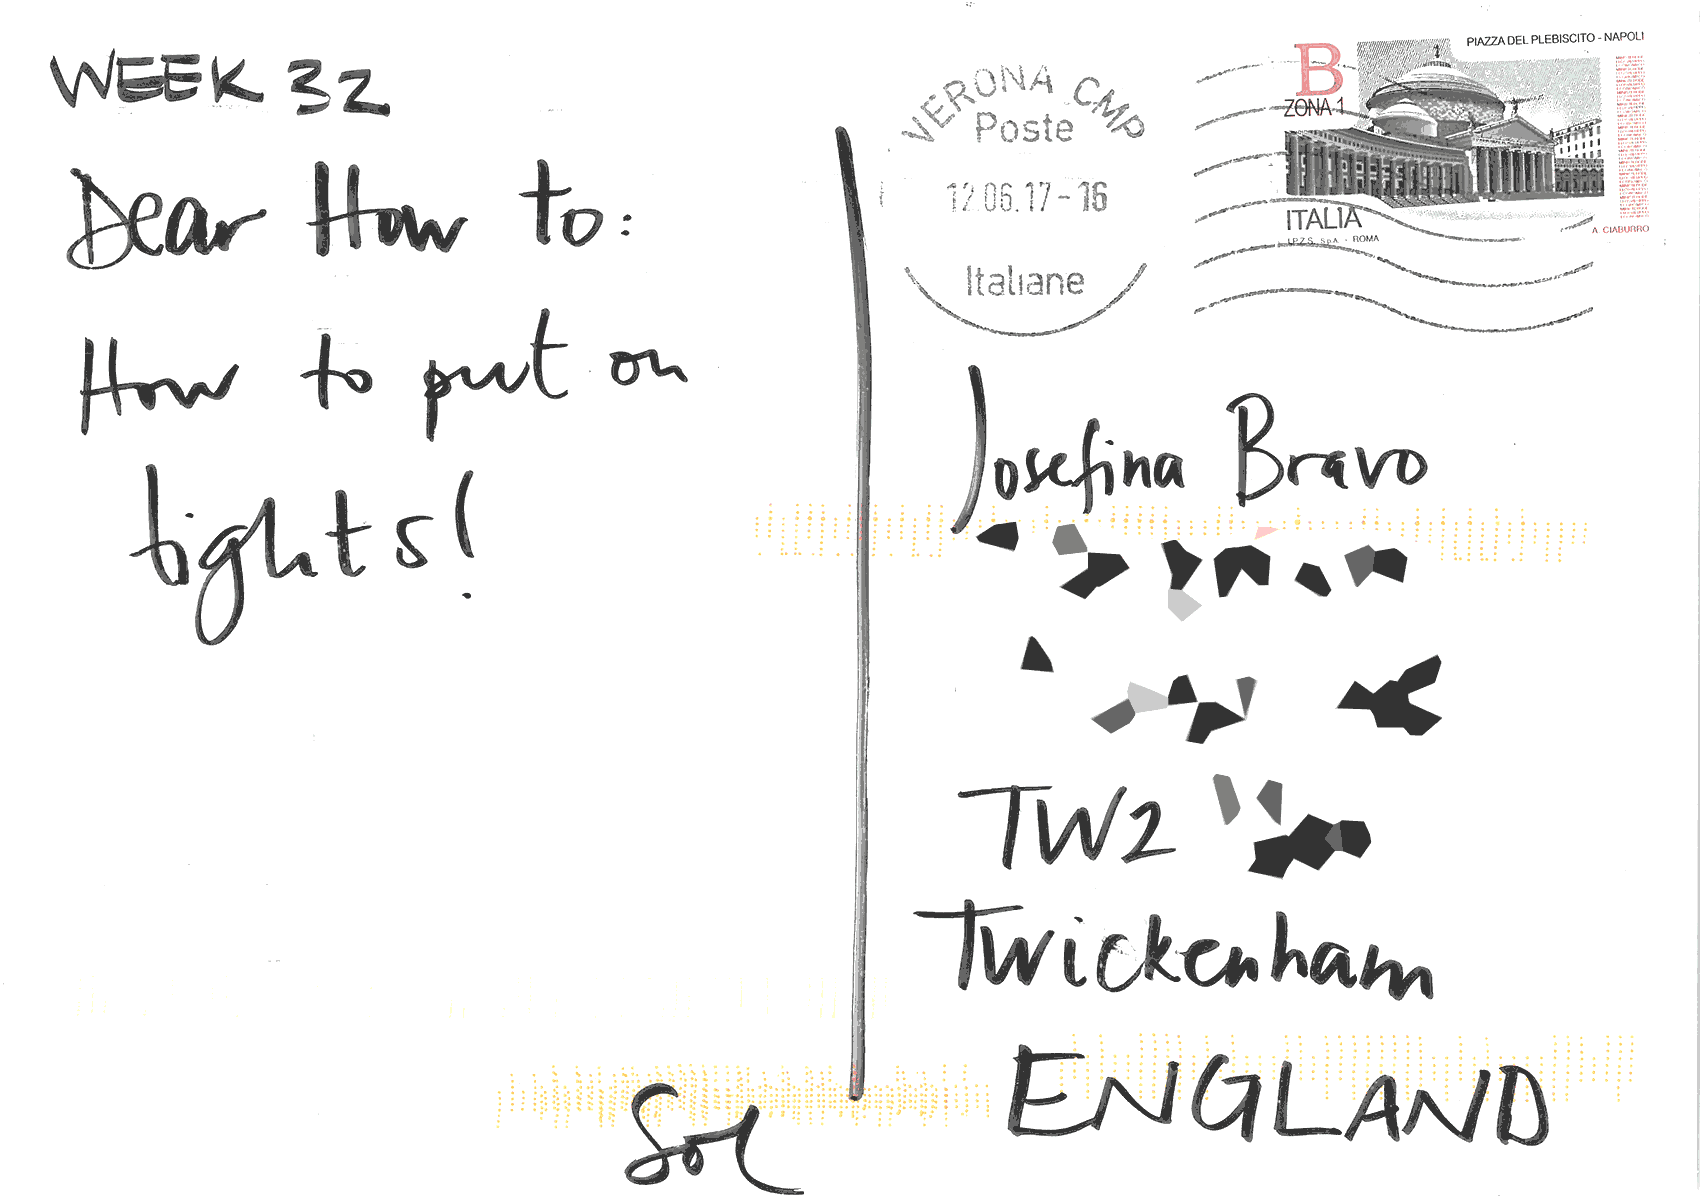 WEEK 32
Dear How to:
How to put on
tights!
Sol
VERONA CMP
Poste
12.06.17-16
Italiane
PIAZZA DEL PLEBISCITO - NAPOLI
B
ZONA 1
ITALIA
I.P.Z.S. S.p.A. - ROMA
A. CIABURRO
Josefina Bravo
TW2
Twickenham
ENGLAND